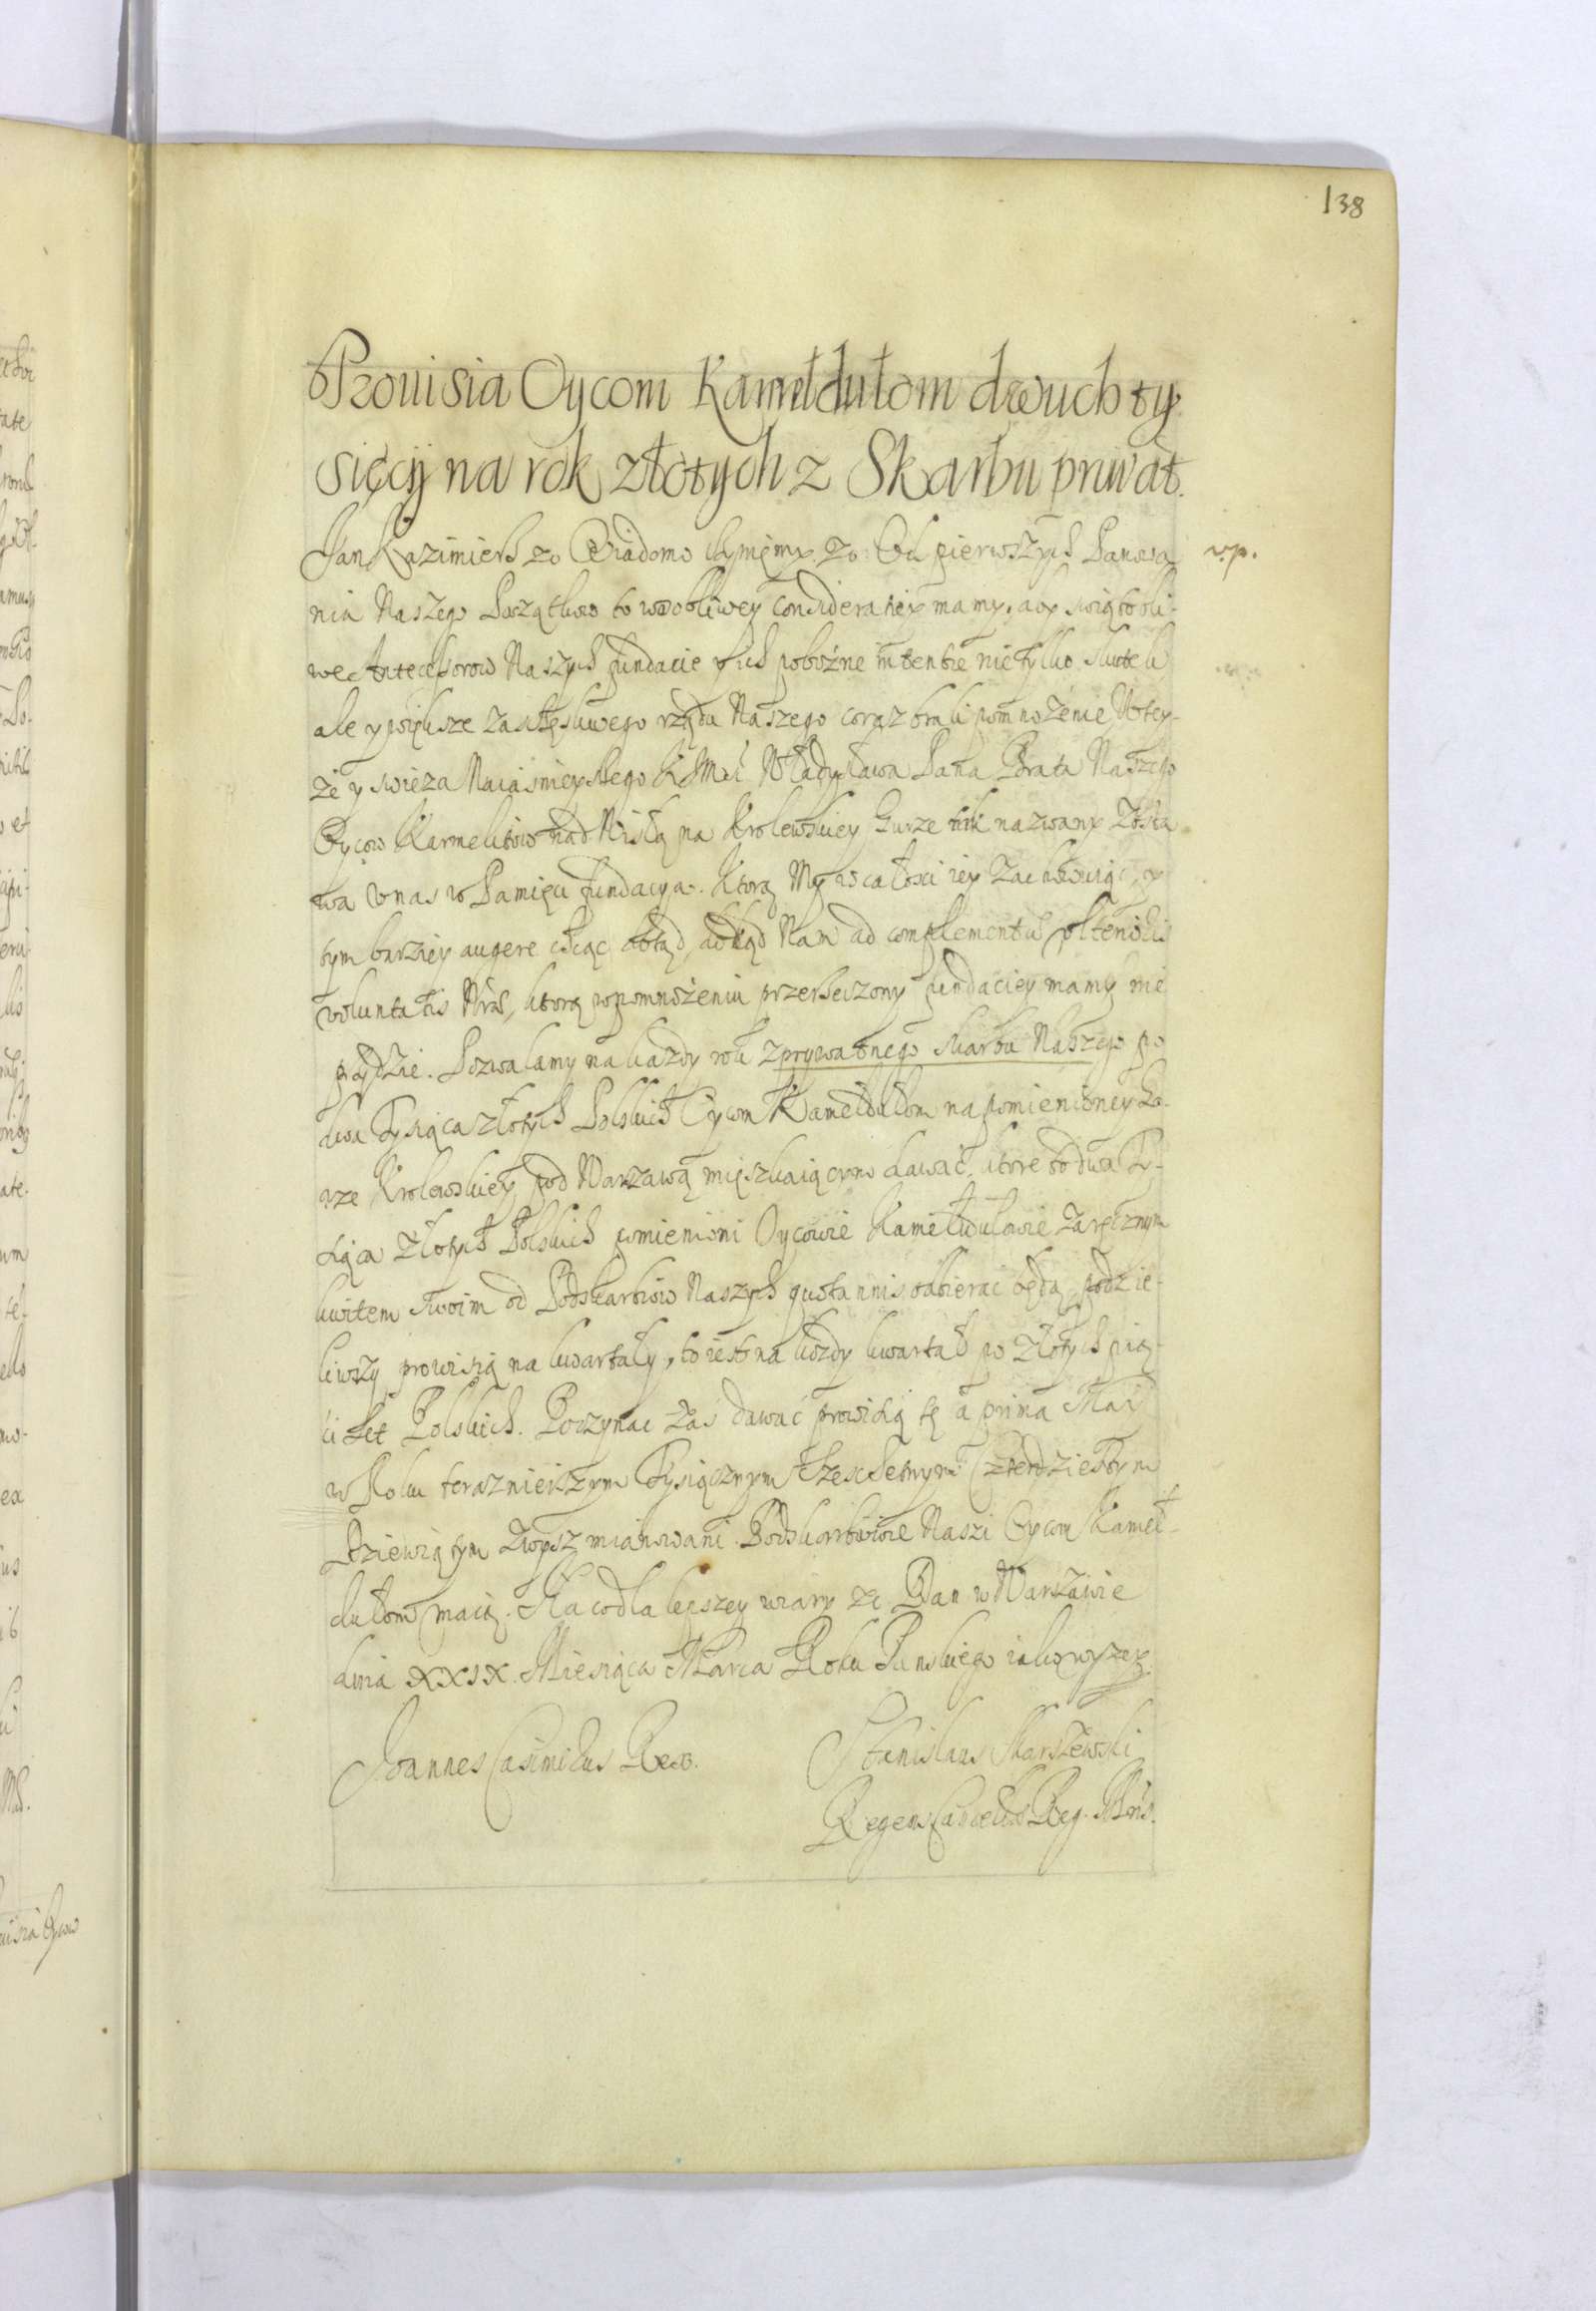 138
Prouisia Oycom Kameldułom dwuch ty
sięcy na rok złotych z Skarbu priwat.
Jan Kazimierz &c Wiadomo czyniemy &c Od pierwszych Panowa
v.p.
nia Naszego Początkow to w osobliwey consideratiey mamy, aby swiątobli-
we Antecessorow Naszych fundacie y ich pobożne intentie nie tylko skutek
ale y większe za szczęsliwego rządu Naszego coraz brali pomnożenie W tey-
że y swieża Naiasnieyszego K JMci Władysława Pana Brata Naszego
Oycow Karmelitów nad Wisłą na Krolewskiey Gurze tak nazwany Zosta
wa v nas w Pamięci fundacya. Ktorą My w całosci iey zachowuiąc, y
tym barziey augere chcąc dotąd, dokąd Nam ad complementum ostensis
voluntatis Nræ, ktorą w pomnożeniu przerzeczony fundaciey mamy nie
przydzie. Pozwalamy na kazdy rok z prywatnego skarbu Naszego po
dwa Tysiąca złotych Polskich Oycom Kamełdułom na pomienioney Gu-
rze Krolewskiey pod Warszawą mięszkaiącym dawać, ktore to dwa Ty-
siąca Złotych Polskich pomienioni Oycowie Kamełdułowie za ręcznym
kwitem swoim od Podskarbiow Naszych quotannis odbierać będą, podzie-
liwszy prowisią na kwartały, to iest na kożdy kwartał po Złotych pię-
ci set Polskich. Poczynac zas dawać prowisią tę a prima Maii
w Roku terasznieiszym Tysiącznym Szescsetnym Czterdziestym
Dziewiątym zwysz mianowani Podskarbiowie Naszi Oycom Kameł-
dułom maią. Na co dla lepszey wiary &c Dan w Warszawie
dnia XXIX. Miesiąca Marca Roku Panskiego iako wyzey
Joannes Casimirus Rex.
Stanislaus Skarszewski
Regens Cancell. Reg. Mris.